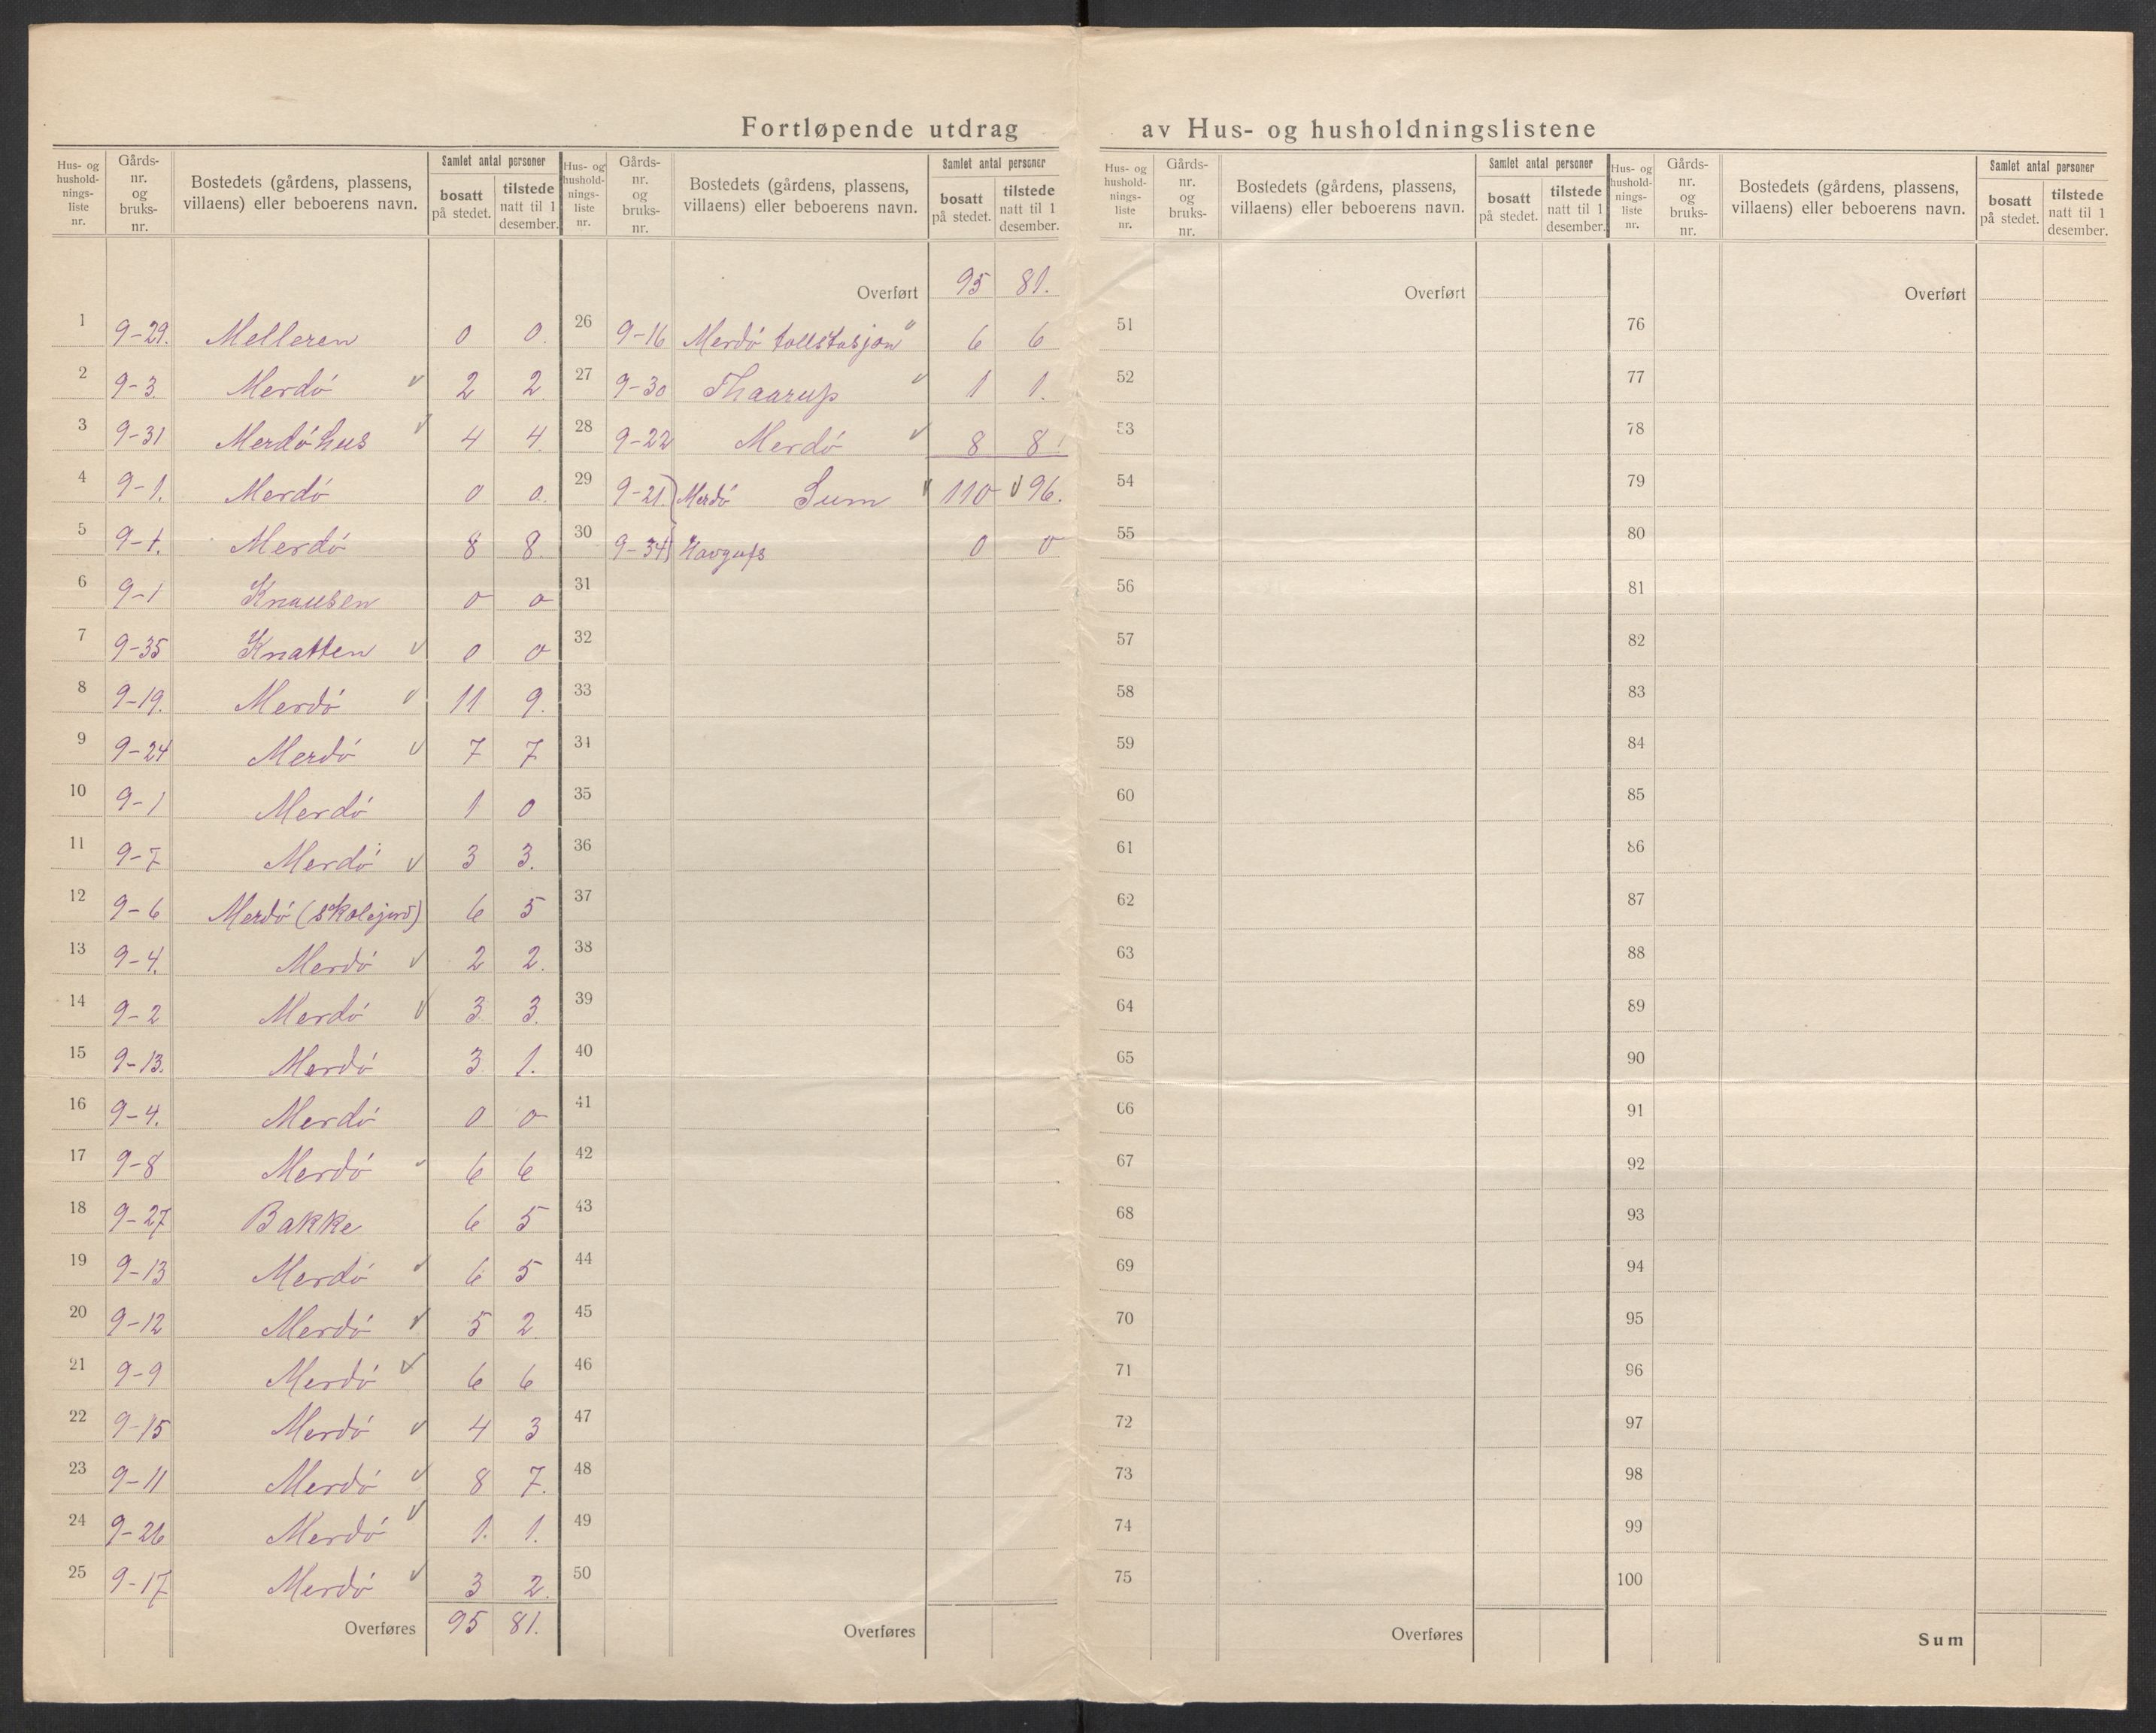 Fortløpende utdrag av Hus- og husholdningslistene
Hus- og hushold- nings- liste nr. | Gårds- nr. og bruks- nr. | Bostedets (gårdens, plassens, villaens) eller beboerens navn. | Samlet antal personer | bosatt på stedet. | tilstede natt til 1 desember.
1 9-29. Melleren 0 0.
2 9-3. Merdö v 2 2.
3 9-31 Merdöhus v 4 4.
4 9-1. Merdö 0 0.
5 9-1. Merdö 8 8.
6 9-1 Knausen 0 0
7 9-35 Knatten v 0 0
8 9-19. Merdö v 11 9.
9 9-24 Merdö v 7 7
10 9-1 Merdö 1 0
11 9-7 Merdö v 3 3.
12 9-6 Merdö (skolejord) 6 5
13 9-4. Merdö v 2 2.
14 9-2 Merdö v 3 3.
15 9-13. Merdö 3 1.
16 9-4. Merdö 0 0
17 9-8 Merdö v 6 6
18 9-27 Bakke 6 5
19 9-13 Merdö v 6 5
20 9-12 Merdö v 5 2
21 9-9 Merdö v 6 6
22 9-15 Merdö v 4 3
23 9-11 Merdö v 8 7.
24 9-26 Merdö v 1. 1.
25 9-17 Merdö v 3 2.
Overføres 95 81.
Hus- og hushold- nings- liste nr. | Gårds- nr. og bruks- nr. | Bostedets (gårdens, plassens, villaens) eller beboerens navn. | Samlet antal personer | bosatt på stedet. | tilstede natt til 1 desember.
Overført 95 81.
26 9-16 Merdö tollstasjon v 6 6
27 9-30 Thaarup v 1 1.
28 9-22 Merdö v 8 8
29 9-21. Merdö Sum v 110 v 96.
30 9-34 Havgufs 0 0
31
32
33
34
35
36
37
38
39
40
41
42
43
44
45
46
47
48
49
50
Overføres
Hus- og hushold- nings- liste nr. | Gårds- nr. og bruks- nr. | Bostedets (gårdens, plassens, villaens) eller beboerens navn. | Samlet antal personer | bosatt på stedet. | tilstede natt til 1 desember.
Overført
51
52
53
54
55
56
57
58
59
60
61
62
63
64
65
66
67
68
69
70
71
72
73
74
75
Overføres
Hus- og hushold- nings- liste nr. | Gårds- nr. og bruks- nr. | Bostedets (gårdens, plassens, villaens) eller beboerens navn. | Samlet antal personer | bosatt på stedet. | tilstede natt til 1 desember.
Overført
76
77
78
79
80
81
82
83
84
85
86
87
88
89
90
91
92
93
94
95
96
97
98
99
100
Sum